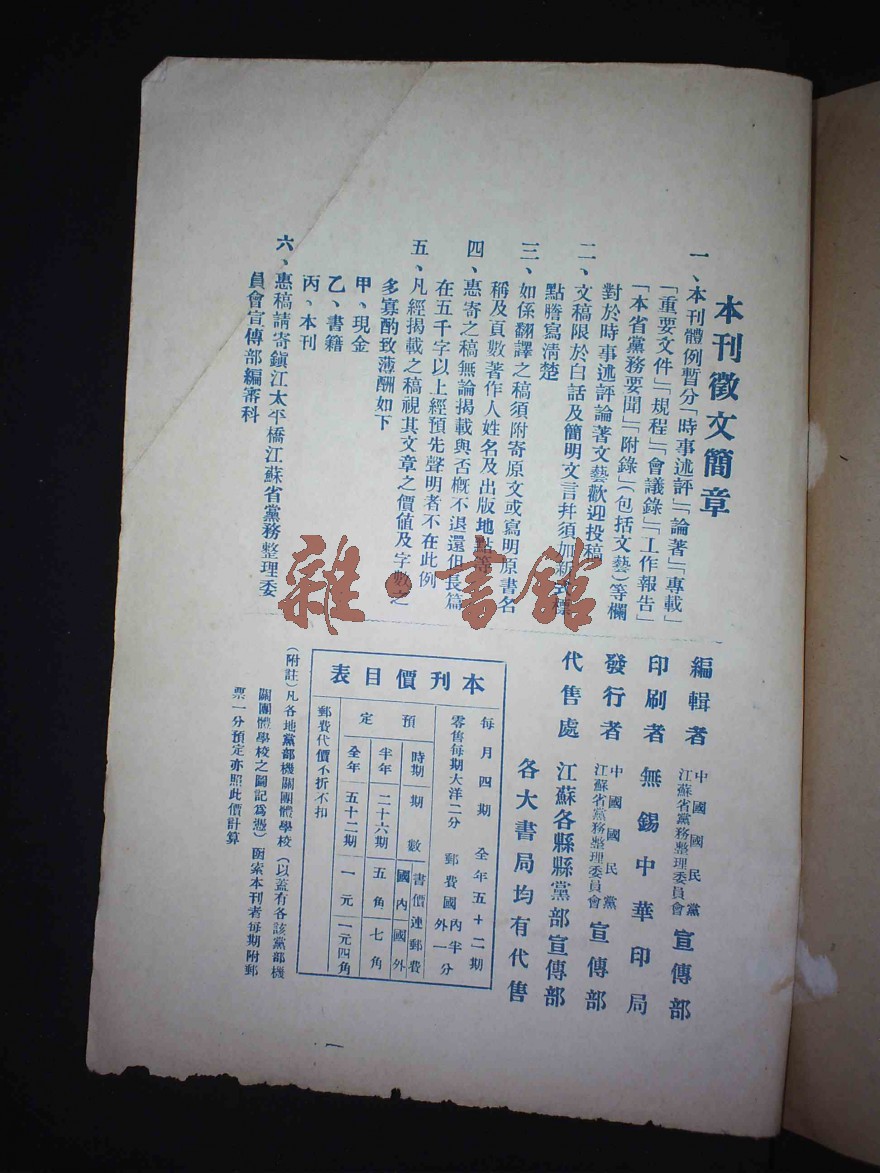 本刊徵文簡章
一、本刊體例暫分「時事述評」「論著」「專載」
「重要文件」「規程」「會議錄」「工作報告」
「本省黨務要聞」「附錄」(包括文藝)等欄
對於時事述評論著文藝歡迎投稿
二、文稿限於白話及簡明文言幷須加新式標
點謄寫淸楚
三、如係翻譯之稿須附寄原文或寫明原書名
稱及頁數著作人姓名及出版地點等
四、惠寄之稿無論揭載與否概不退還但長篇
在五千字以上經預先聲明者不在此例
五、凡經揭載之稿視其文章之價値及字數之
多寡酌致薄酬如下
甲、現金
乙、書籍
丙、本刊
六、惠稿請寄鎭江太平橋江蘇省黨務整理委
員會宣傳部編審科
編輯者 中國國民黨江蘇省黨務整理委員會 宣傳部
印刷者 無錫中華印局
發行者 中國國民黨江蘇省黨務整理委員會 宣傳部
代售處 江蘇各縣縣黨部宣傳部
各大書局均有代售
本刊價目表
每月四期 全年五十二期
零售每期大洋二分 郵費國內半分國外一分
預定
時期 期數 書價連郵費 國內 國外
半年 二十六期 五角 七角
全年 五十二期 一元 一元四角
郵費代價不折不扣
(附註)凡各地黨部機關團體學校(以蓋有各該黨部機
關團體學校之圖記爲憑)函索本刊者每期附郵
票一分預定亦照此價計算
一
雜·書館